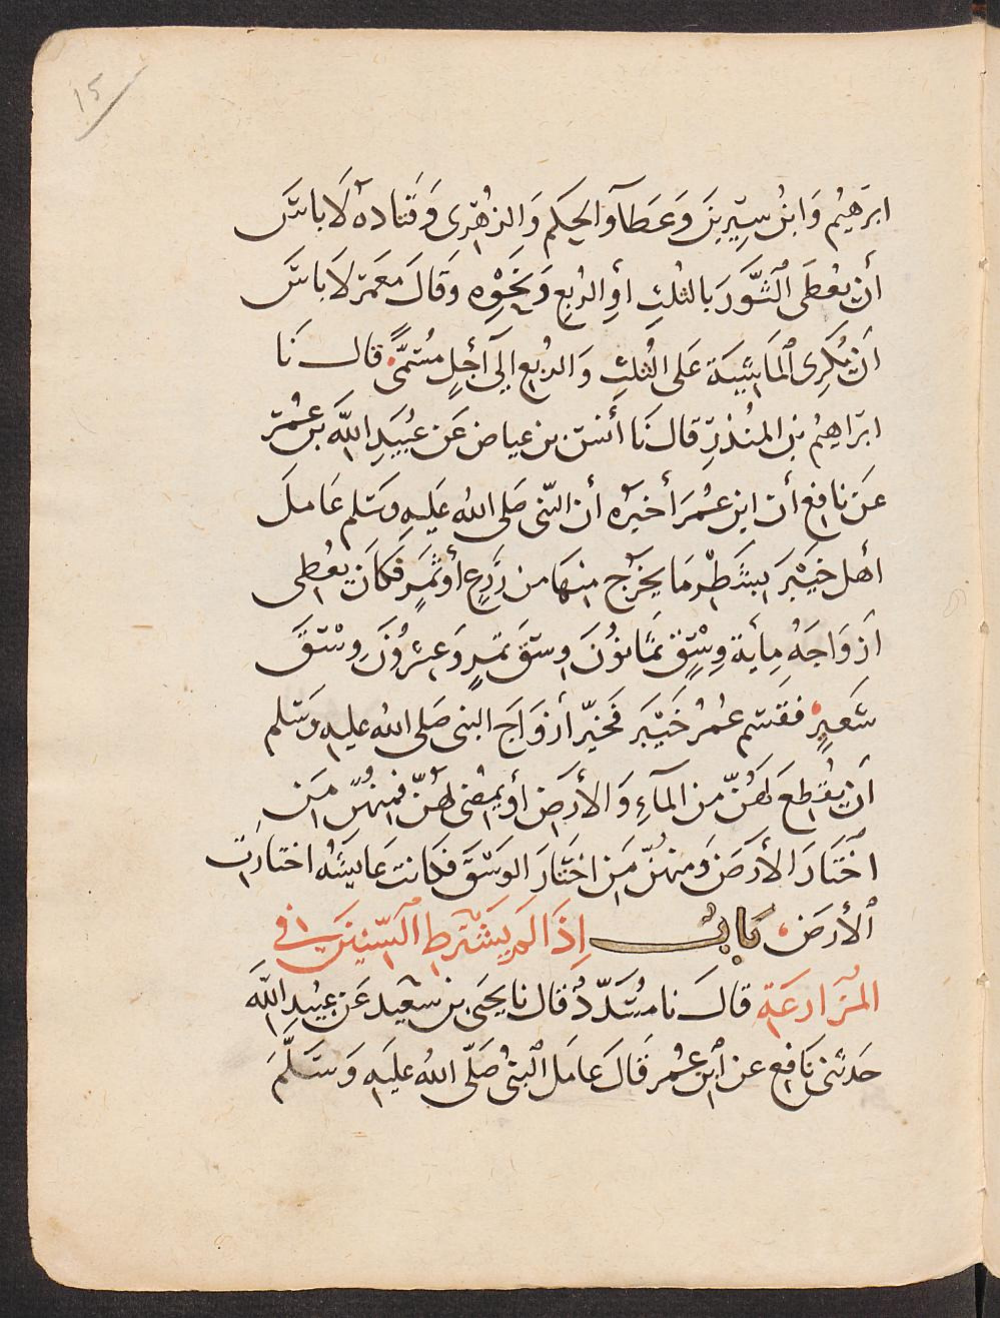 ١٥
ابرٰهيمُ وَابنُ سيرِينَ وَعَطَآ والحكم وَالزهْرِى وَقتادهُ لَا باسَ
أن يعْطَى الثَّوْبَ بالثلثِ أوِ الرُبعِ وَنَحْوِه وَقَالَ مَعمَر لَا باسَ
أن تُكرِى المَاشِيَة عَلى الثُلثِ وَالربع إلى أجَلٍ مُسَمَّىً قال نَا
ابرَاهيمُ بن المنُذرِ قال نَا أنسُ بن عياضٍ عَن عُبَيدِ اللَّه بن عُمَر
عَن نافع أن ابن عُمَرَ أخبره أن النّبى صَلى الله عَليهِ وسَلم عَامل
أهل خيْبَر بشَطْر مَا يخرُج منهَا من زَرعٍ أو ثَمَرٍ فكَانَ يعْطِى
ازوَاجَهُ مِاية وسْقٍ ثمَانوُنَ وسقَ تمرٍ وَعِشرُونَ وسْقَ
شعَيرٍ فقسَم عُمُر خَيْبَر فخيّر أزوَاجَ النبى صَلى الله عليهِ وسَلم
أن يُقطِعَ لهُنّ من المآءِ وَالأرضِ أو يمُضى لهُنّ فمنهُنّ مَن
اختَارَ الأرضَ وَمنهنّ مَن اختَار الوسْقَ فكانت عَايشَه اختارت
الأرضَ بَابُ إِذَا لم يَشترِط السّنِينَ فى
المزَارعَة قالَ نا مُسَدّدٌ قال نا يحيَى بن سَعيد عَن عبيد اللَّه
حَدثنى نَافع عن ابن عُمر قَالَ عَامَل النبىُّ صَلّى اللهُ عليَهِ وَسَلَّمَ